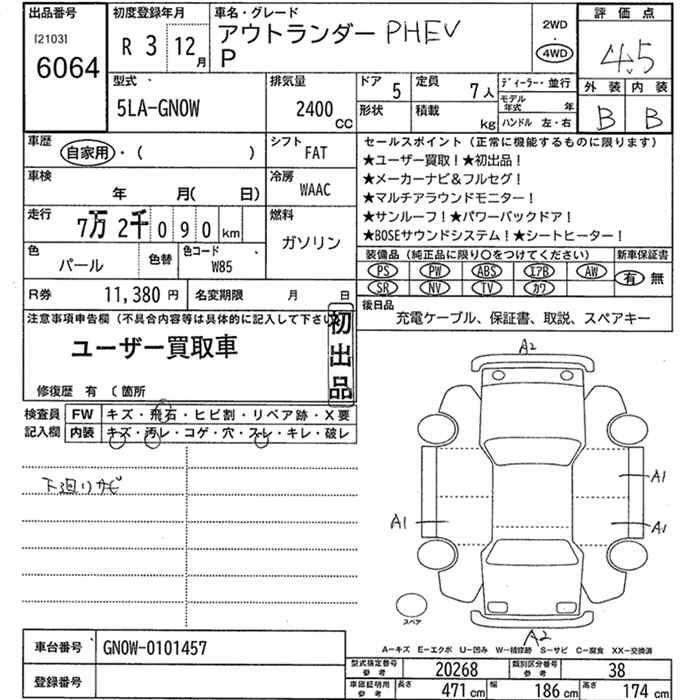 出品番号
[2103]
6064
初度登録年月
R 3 12 月
車名・グレード
アウトランダー PHEV
P
2WD
・
4WD
評価点
4.5
外装 内装
B B
型式
5LA-GN0W
排気量
2400 CC
ドア 5
形状
定員 7人
積載 kg
ディーラー・並行
モデル年式 年
ハンドル 左・右
車歴
自家用・( )
シフト
FAT
車検
年 月( 日)
冷房
WAAC
走行
7万 2千 0 9 0 km
燃料
ガソリン
色
パール
色替
色コード
W85
R券 11,380 円
名変期限 月 日
セールスポイント(正常に機能するものに限ります)
★ユーザー買取!★初出品!
★メーカーナビ&フルセグ!
★マルチアラウンドモニター!
★サンルーフ!★パワーバックドア!
★BOSEサウンドシステム!★シートヒーター!
装備品(純正品に限り○をつけてください)
PS PW ABS エアB AW
SR NV TV カワ
新車保証書
有 無
後日品
充電ケーブル、保証書、取説、スペアキー
注意事項申告欄(不具合内容等は具体的に記入して下さい)
ユーザー買取車
初出品
修復歴 有 〔箇所
検査員記入欄
FW キズ・飛石・ヒビ割・リペア跡・X要
内装 キズ・汚レ・コゲ・穴・スレ・キレ・破レ
下廻りサビ
A2
A1
A1
A1
スペア
A2
A−キズ E−エクボ U−凹み W−補修跡 S−サビ C−腐食 XX−交換済
車台番号 GN0W-0101457
登録番号
型式指定番号 参考 20268
類別区分番号 参考 38
車庫証明用 参考 長さ 471 cm 幅 186 cm 高さ 174 cm